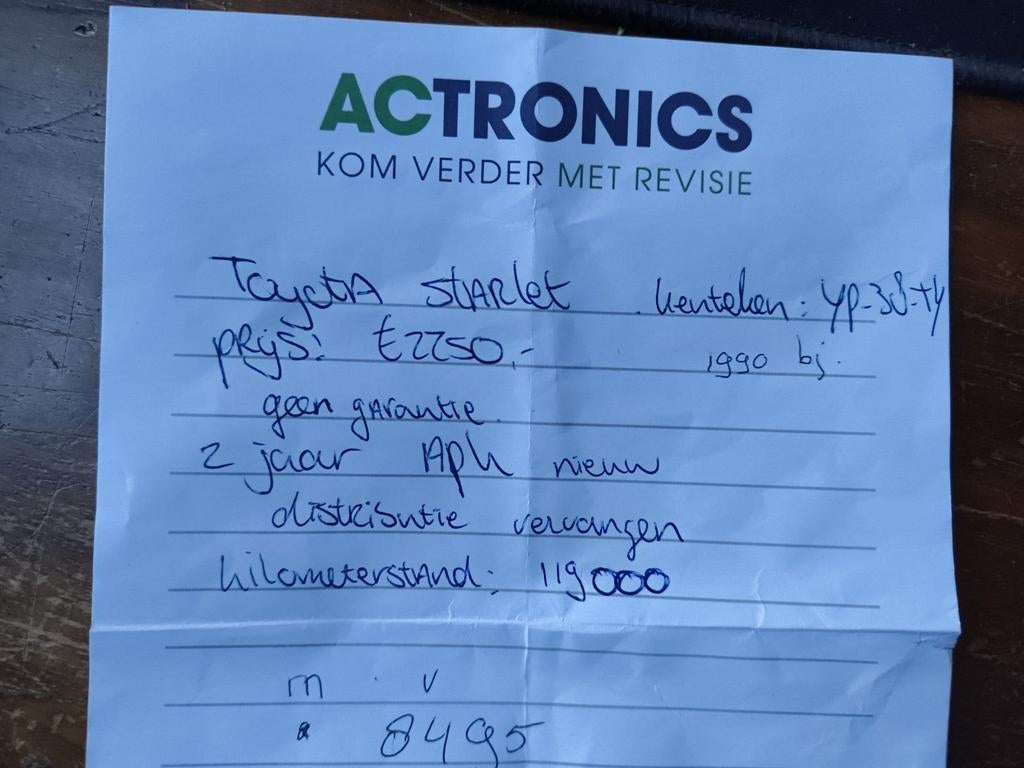 ACTRONICS
KOM VERDER MET REVISIE
ToyotA stARlet kenteken: YP-38-TY
prijs: €2250,- 1990 bj.
geen gArantie.
2 jaar Apk nieuw
distributie vervangen
kilometerstAnd: 119000
m v
8495